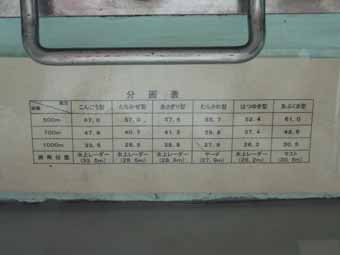 分画表
こんごう型 たちかぜ型 あさぎり型 むらさめ型 はつゆき型 あぶくま型
500m 67.0 57.0 57.6 55.7 52.4 61.0
700m 47.9 40.7 41.2 39.8 37.4 43.6
1000m 33.5 28.5 28.8 27.9 26.2 30.5
水上レーダー 水上レーダー 水上レーダー ヤード 水上レーダー マスト
(33.5m) (28.5m) (28.8m) (27.9m) (26.2m) (30.5m)